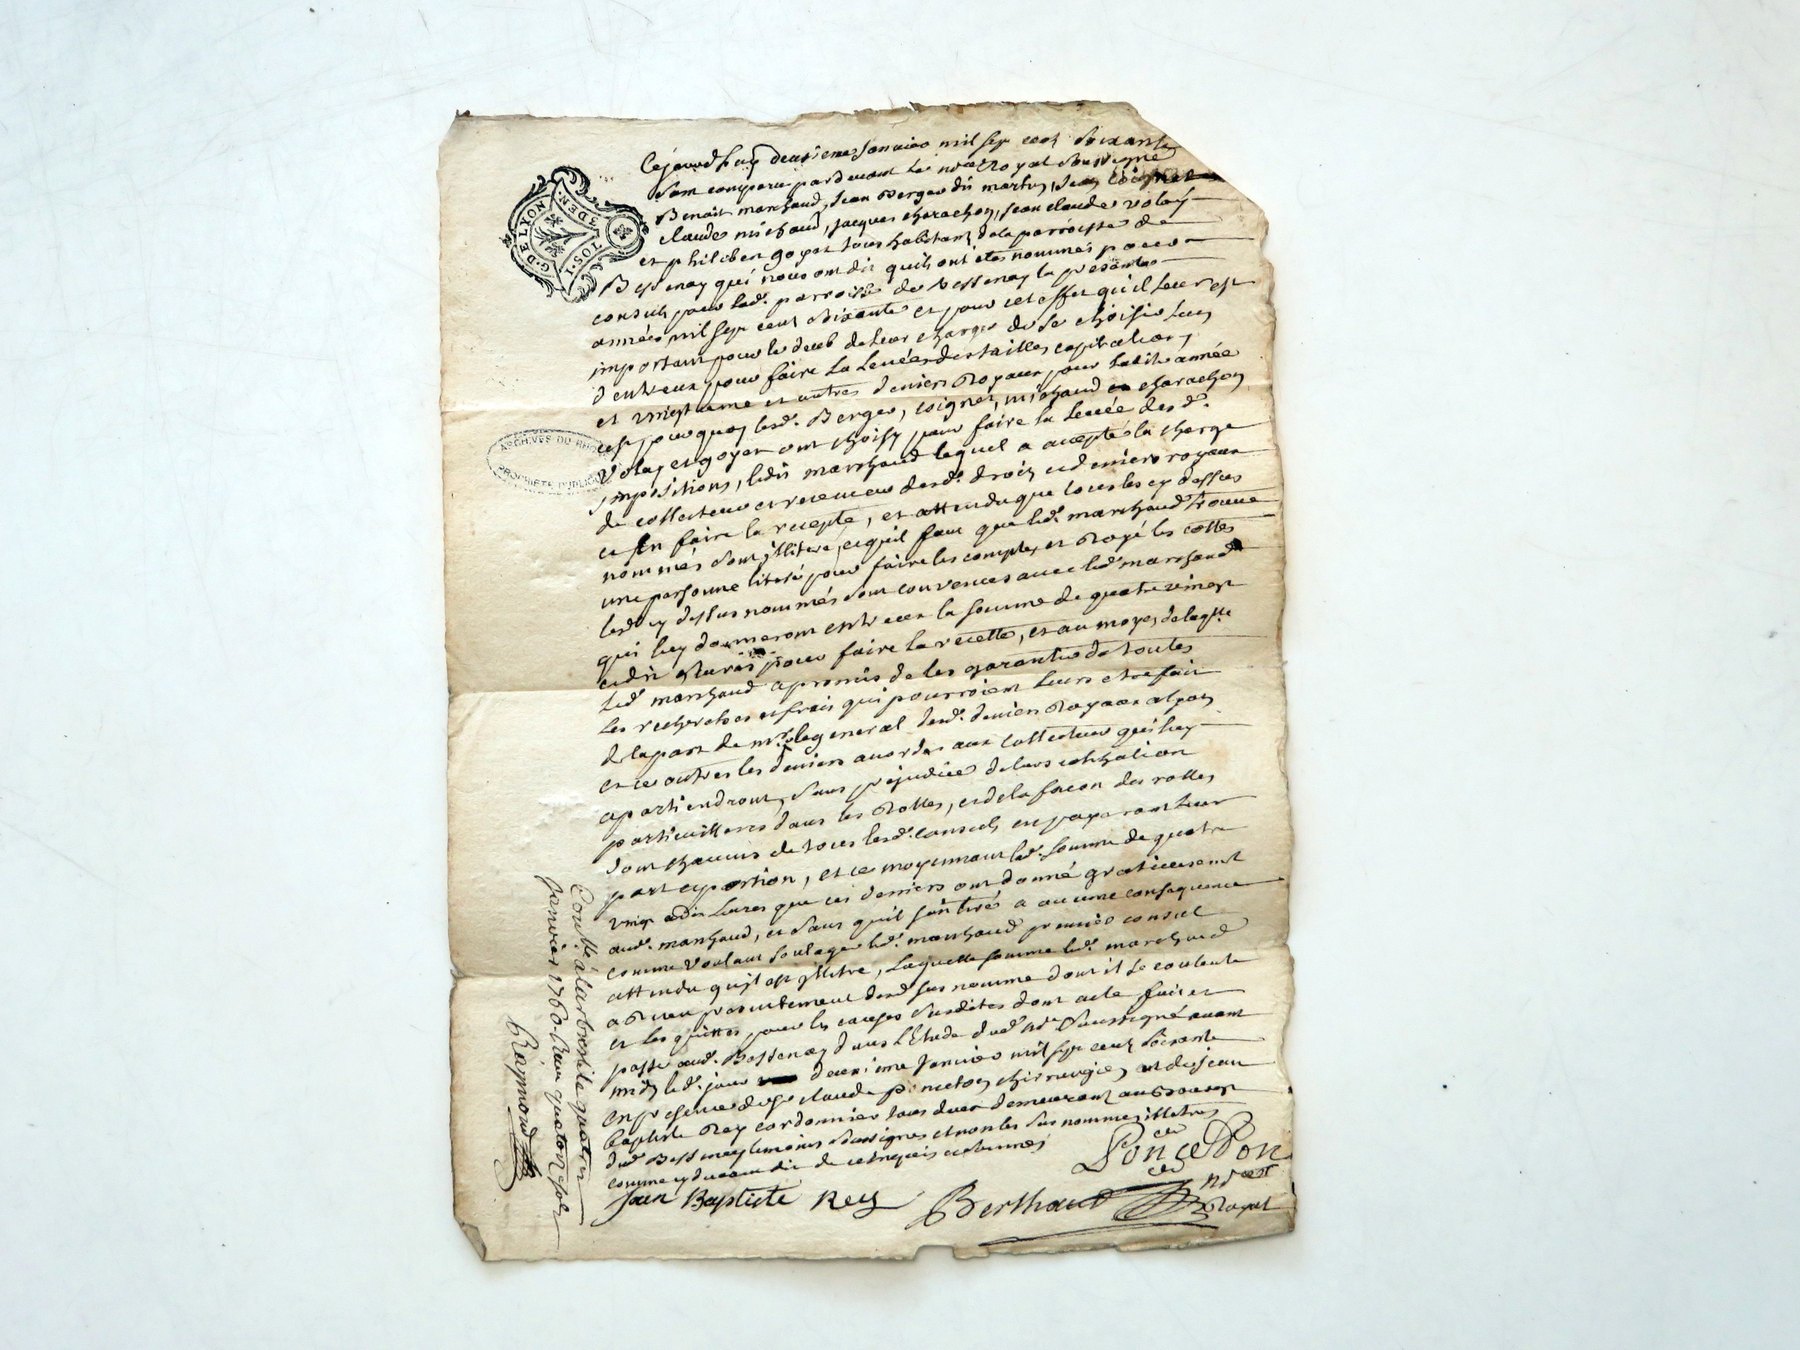 G. DE LYON
5 DEN.
TOS. I.
ARCHIVES DU RHÔ
PROPRIETE PUBLIQUE
Cejourd'huy deuxieme Janvier mil sep cent soixante
sont comparu pardevant le nore Royal soussigné
Benoit marchand, Jean Berger dit martin, Jean Coignet
claude michaud, jacques charachon, Jean claude volay
et philibert goyet tous habitant de la parroisse de
Bessenay qui nous ont dit quils ont étés nommés pour
consuls pour lad. parroisse de Bessenay la presente
année mil sep cent soixante et pour cet effet qu'il leur est
important pour le deub de leur charge de se choisir lun
d'entreux pour faire la Levée des tailles capitation,
et vingtieme et autres deniers Royaux pour ladite année
cest pourquoy lesd. Berger, Coignet, michaud charachon
volay et goyet ont choisy pour faire la Levée des d.
impositions, ledit marchand lequel a accepté la charge
de collecteur et receveur desd. droits et deniers royaux
et en faire la recepte, et attendu que tous les cy dessus
nommés sont illitere, et quil faut que led. marchand trouve
une personne literé pour faire les comptes et Rayé les cottes
lesd. cy dessus nommés sont convenus avec led. marchand
qui luy donneront entreux la somme de quatre vingt
et dix livres pour faire la recette, et au moyen de laqlle
led. marchand a promis de les garantir de toutes
les recherches et frais qui pourroient leurs etre fait
de la part de mr le general desd. deniers Royaux
et ce outres les deniers accordés aux collecteur qui luy
apartiendront, sans prejudice de leurs cottisation
particulieres dans les Rolles, et de la façon des rolles
dont chacun de tous lesd. consuls en payeront leur
part et portion, et ce moyennant lad. somme de quatre
vingt et dix Livres que ces derniers ont donné gratieusement
aud. marchand, et sans quil soit tiré a aucune consequence
comme voulant soulager led. marchand premier consul
attendu quil est illitre, Laquelle somme led. marchand
a Recu presentement desd. sus nomme dont il se contente
et les quittes pour les causes susdites dont acte fait et
passé aud. Bessenay dans l'Etude dud. nre soussigné avant
midy led. jour deuxieme Janvier mil sept cent soixante
en presence de sr claude chirurgien et de jean
Baptiste Rey cordonnier tous deux demeurant au Bourg
dud. Bessenay temoins soussignés et non les sus nommes illitres
comme ils ont dit de ce enquis et sommés
Jean Baptiste Rey
Berthaud
nore
Royal
Con.llé à larbresle le quatre
Janvier 1760. Reçu quatorze sols
Raymond